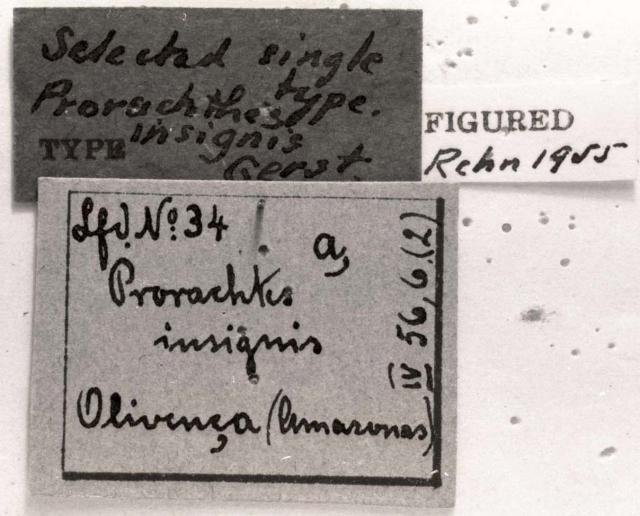 Selected single
type.
Prorachthes
TYPE insignis
Gerst.
FIGURED
Rehn 1955
Lfd. No: 34
a,
Prorachtes
insignis
Olivença (Amazonas)
IV 56, 6. (2)